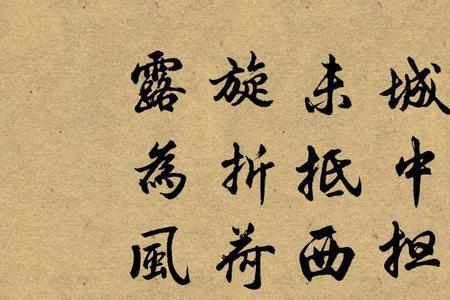 城中担
未抵西
旋折荷
露為風